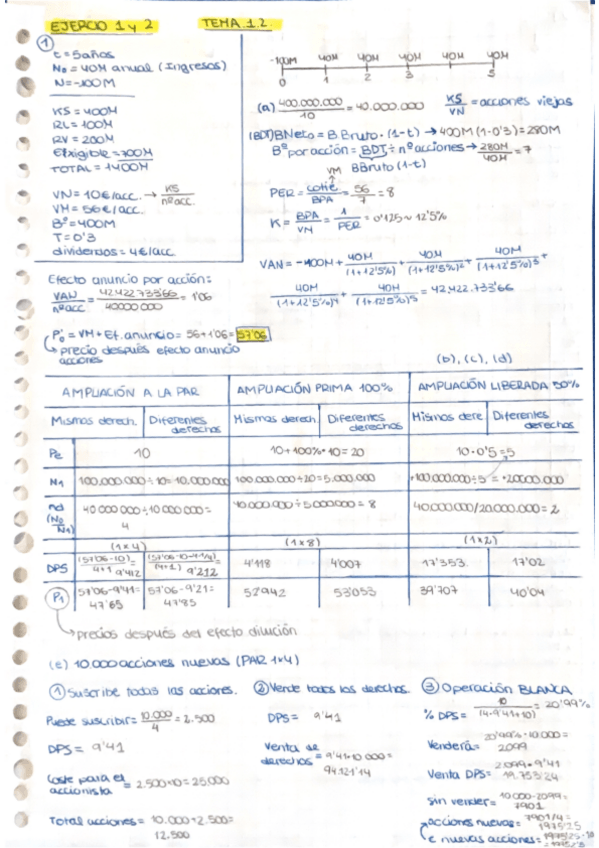 EJERCICIO 1 y 2 TEMA 1.2.
①
t = 5 años
N₀ = 40M anual (Ingresos)
N = -100M
KS = 400M
RL = 100M
RV = 200M
Exigible = 700M
TOTAL = 1400M
VN = 10€/acc. → KS / nº acc.
VM = 56€/acc.
Bº = 400M
T = 0'3
dividendos = 4€/acc
-100M 40M 40M 40M 40M 40M
0 1 2 3 5
(a) 400.000.000 / 10 = 40.000.000 KS / VN = acciones viejas
(BDT) BNeto = B Bruto · (1-t) → 400M (1-0'3) = 280M
Bº por acción = BDT ÷ nº acciones → 280M / 40M = 7
BBruto (1-t)
VM
PER = cotiz / BPA = 56 / 7 = 8
K = BPA / VM = 1 / PER = 0'125 ~ 12'5%
VAN = -100M + 40M / (1+12'5%) + 40M / (1+12'5%)² + 40M / (1+12'5%)³ +
40M / (1+12'5%)⁴ + 40M / (1+12'5%)⁵ = 42.422.733'66
Efecto anuncio por acción:
VAN / nº acc = 42.422.733'66 / 40000000 = 1'06
P'₀ = VM + Ef. anuncio = 56 + 1'06 = 57'06
↳ precio después efecto anuncio
acciones
(b), (c), (d)
AMPLIACIÓN A LA PAR AMPLIACIÓN PRIMA 100% AMPLIACIÓN LIBERADA 50%
Mismos derech. Diferentes derechos Mismos derech. Diferentes derechos Mismos dere Diferentes derechos
Pe 10 10 + 100% · 10 = 20 10 · 0'5 = 5
N1 100.000.000 ÷ 10 = 10.000.000 100.000.000 ÷ 20 = 5.000.000 100.000.000 ÷ 5 = 20000.000
nd (N₀/N1) 40 000 000 ÷ 10 000 000 = 4 40.000.000 ÷ 5000000 = 8 40.000.000/20.000.000 = 2
(1x4) (1x8) (1x2)
DPS (57'06-10) / 4+1 = 9'412 (57'06-10-4·1/4) / (4+1) 9'212 4'118 4'007 17'353 17'02
P1 57'06-9'41= 47'65 57'06-9'21= 47'85 52'942 53'053 39'707 40'04
↳ precios después del efecto dilución
(e) 10.000 acciones nuevas (PAR 1x4)
① Suscribe todas las acciones.
Puede suscribir = 10.000 / 4 = 2.500
DPS = 9'41
Coste para el accionista = 2.500·10 = 25.000
Total acciones = 10.000 + 2.500 =
12.500
② Vende todos los derechos.
DPS = 9'41
Venta de derechos = 9'41·10 000 =
94.121'14
③ Operación BLANCA
% DPS = 10 / (4·9'41+10) = 20'99%
Venderá = 20'99% · 10.000 =
2.099
Venta DPS = 2.099 · 9'41
19.753'24
sin vender = 10.000 - 2099 =
7901
acciones nuevas = 7901/4 =
1975'25
€ nuevas acciones = 1975'25 · 10